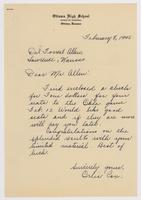 Ottawa High School
Ottawa, Kansas
February 8, 1945
Dr. Forrest Allen
Lawrence, Kansas
Dear Mr. Allen:
Find enclosed a check
for four dollars for your
seats to the Okla. game
Feb. 12. Would like good
seats and if they are more
will pay you later.
Congratulations on the
splendid results with your
limited material. Best of
luck.
Sincerely yours,
Orlis Cox